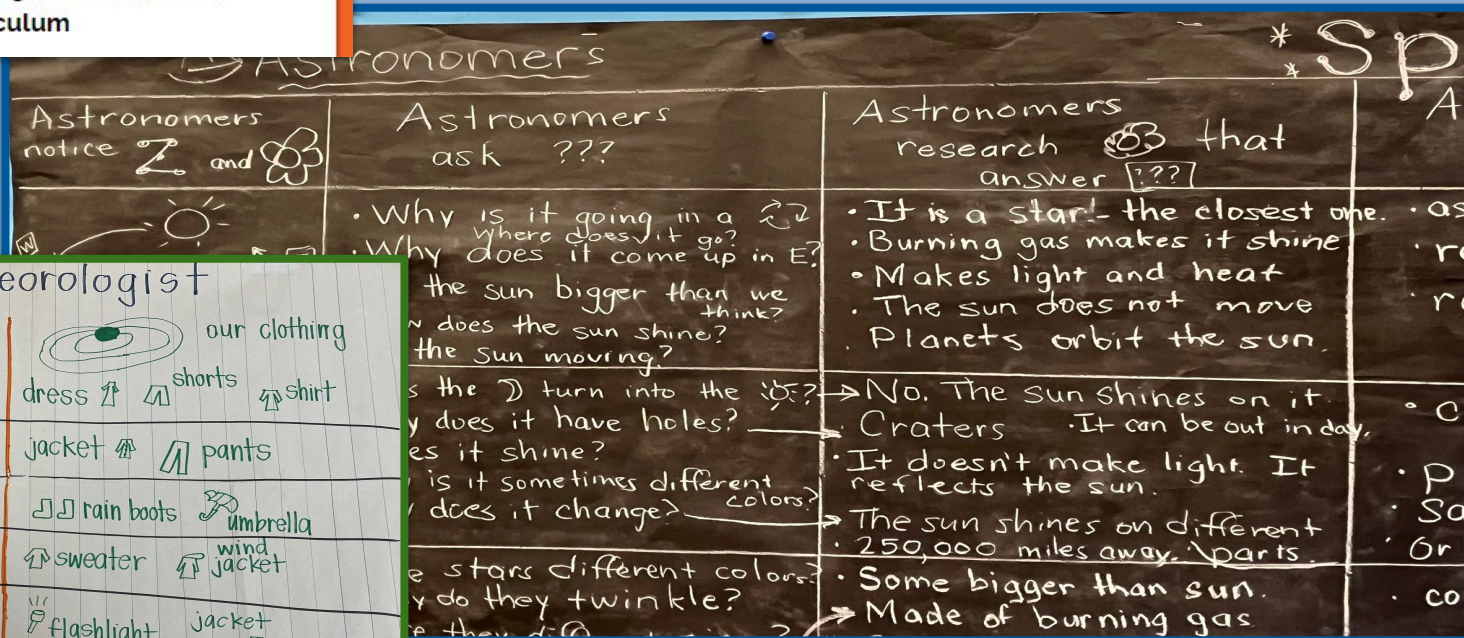 culum
Astronomers
Sp
Astronomers
notice and
Astronomers
ask ???
Astronomers
research that
answer ???
A
W
• Why is it going in a
Where does it go?
• Why does it come up in E?
the sun bigger than we
think?
does the sun shine?
the sun moving?
• It is a star! - the closest one.
• Burning gas makes it shine
• Makes light and heat
• The sun does not move
• Planets orbit the sun.
• as
• r
the turn into the ?
does it have holes?
es it shine?
is it sometimes different
colors?
does it change?
No. The sun shines on it
Craters • It can be out in day.
• It doesn't make light. It
reflects the sun.
The sun shines on different
parts.
• 250,000 miles away.
• C
• P
• So
• Or
stars different colors?
do they twinkle?
• Some bigger than sun.
Made of burning gas
• co
eorologist
our clothing
dress shorts shirt
jacket pants
rain boots umbrella
sweater wind
jacket
flashlight jacket